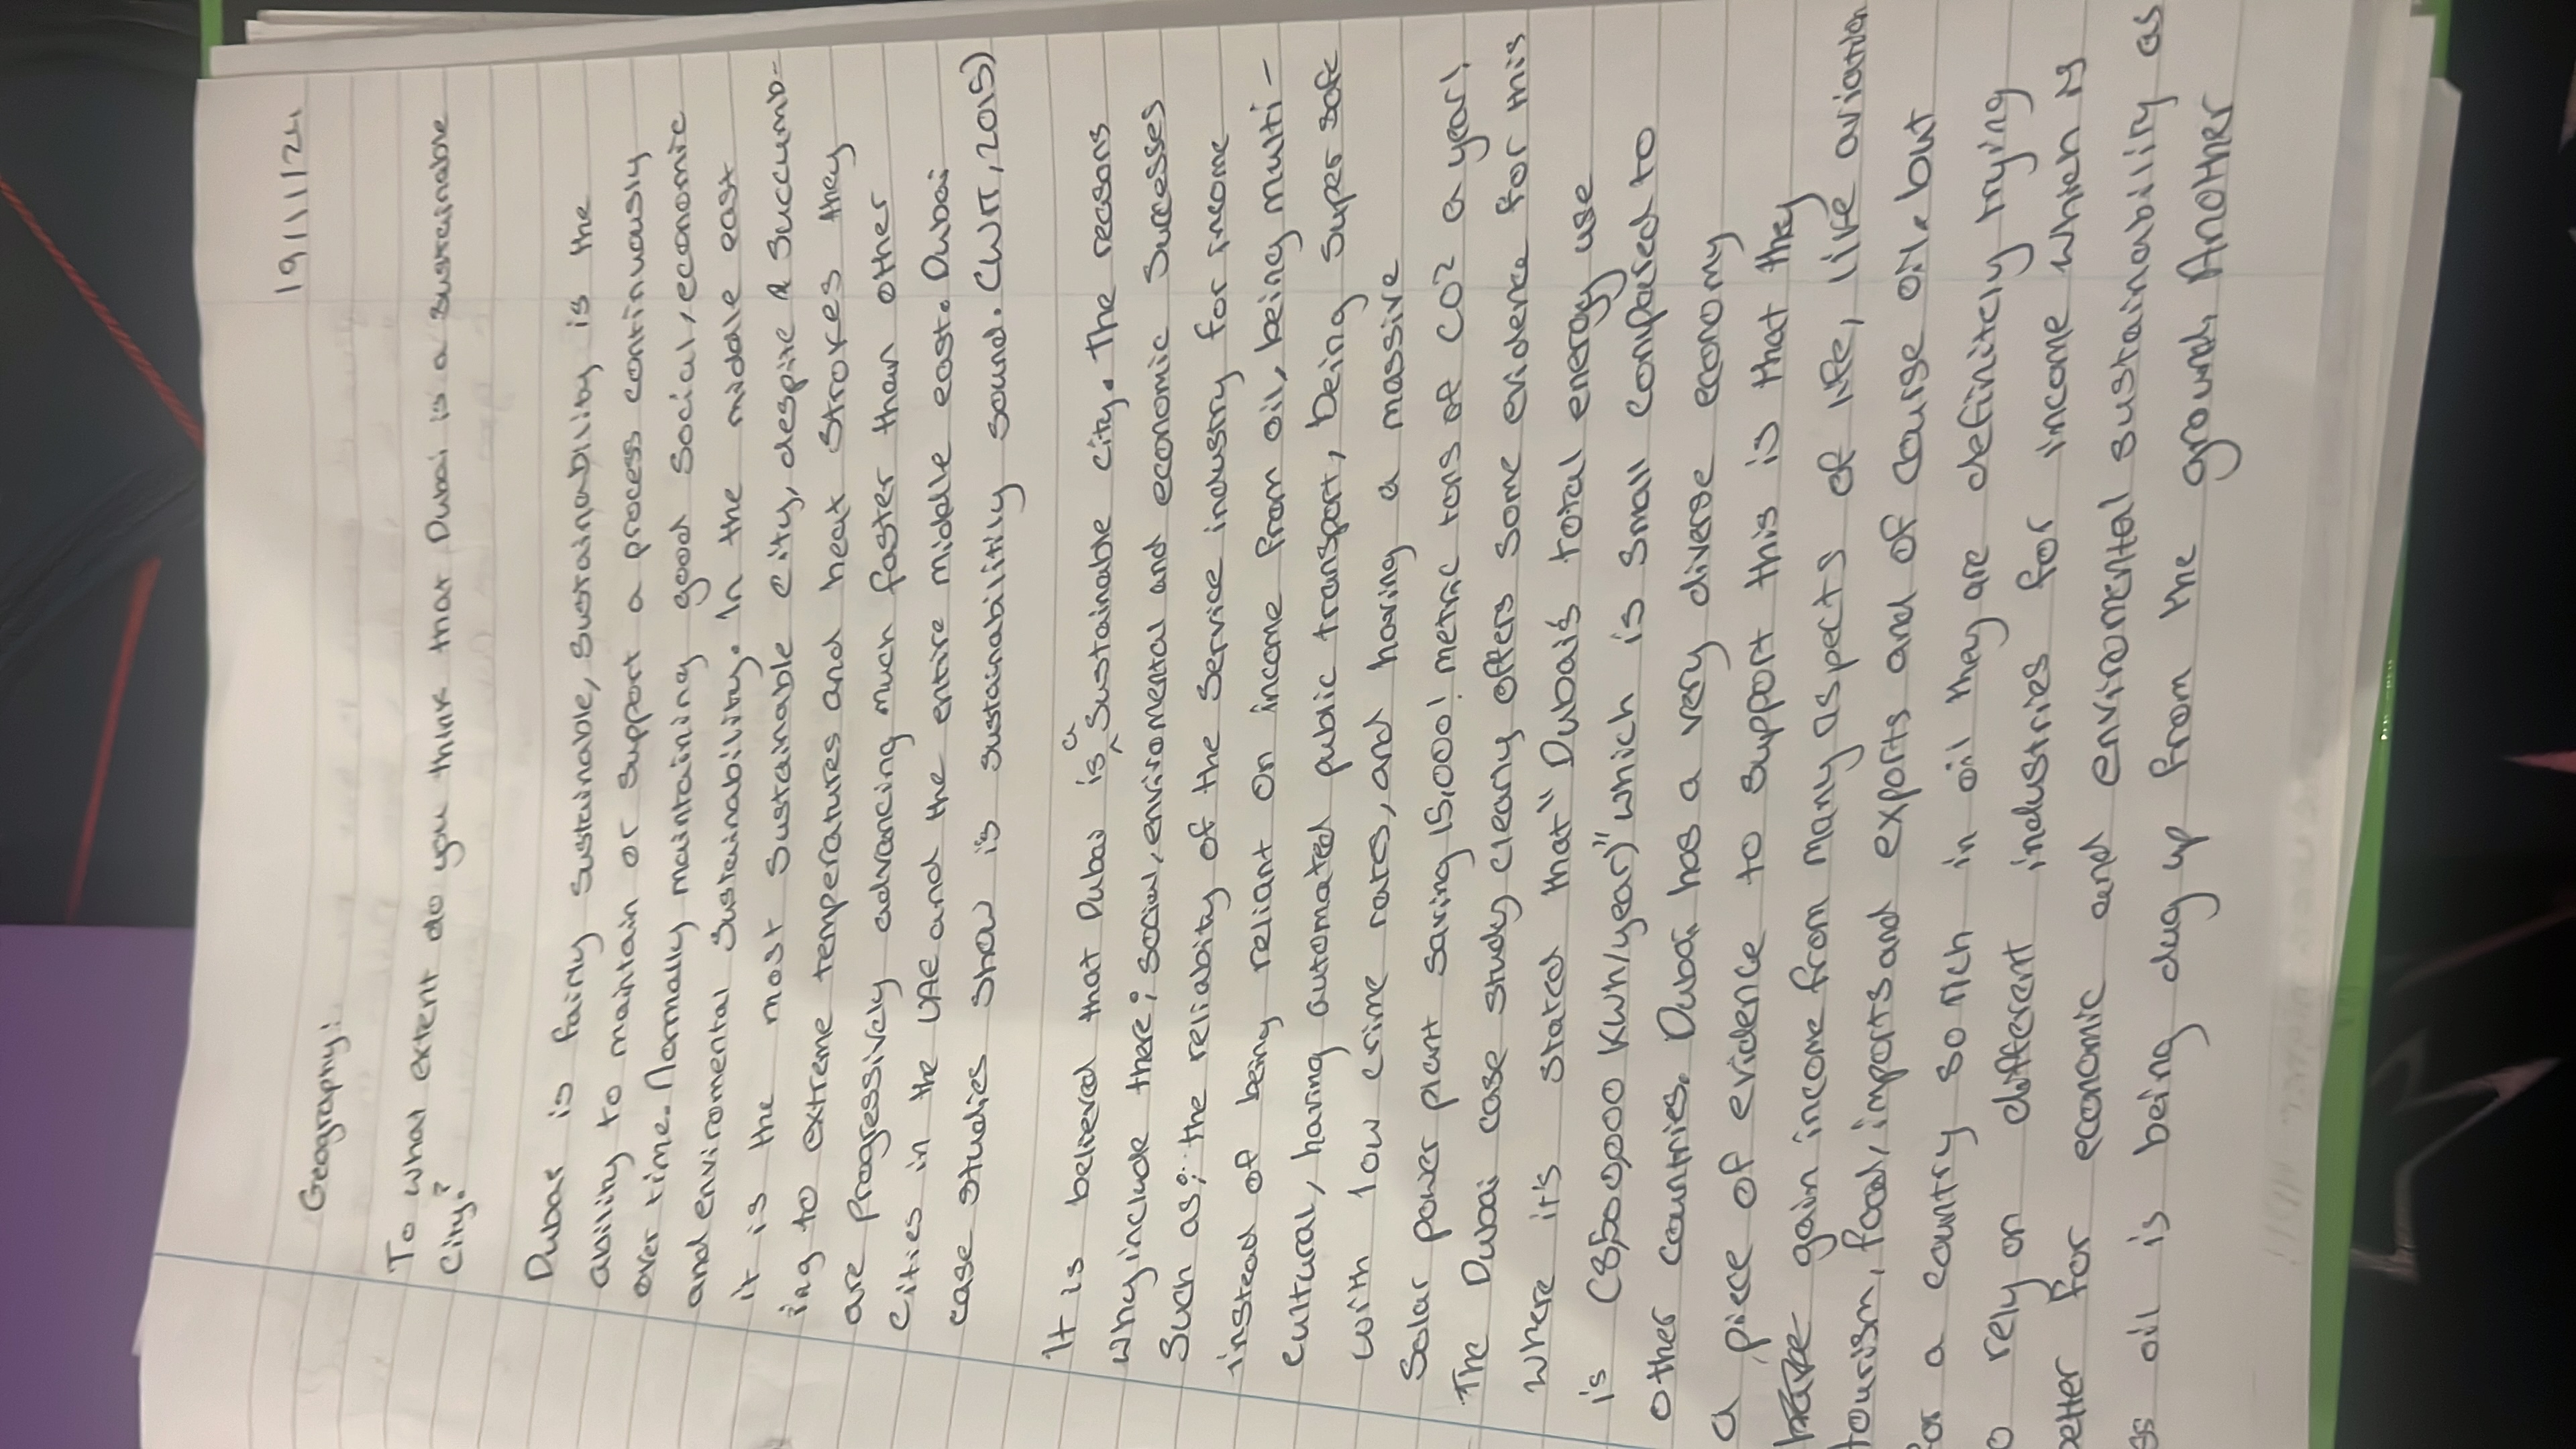 19/11/24
Geography!
To what extent do you think that Dubai is a sustainable
City?
Dubai is fairly sustainable, sustainability is the
ability to maintain or support a process continuously
over time. Normally maintaining good social, economic
and enviromental sustainability. In the middle east
it is the most sustainable city, despite succumb-
ing to extreme temperatures and heat strokes they
are progressively advancing much faster than other
cities in the UAE and the entire middle east. Dubai
case studies show is sustainabilitily sound. (WTT, 2015)
It is believed that Dubai is a sustainable city. The reasons
why include there; social, enviromental and economic successes
such as; the reliabity of the service industry for income
instead of being reliant on income from oil, being multi-
cultural, having automated public transport, being super safe
with low crime rates, and having a massive
solar power plant saving 15,000! metric tons of CO2 a year!
The Dubai case study clearly offers some evidence for this
where it's stated that "Dubai's total energy use
is (8,500,000 KWh/year)" which is small compared to
other countries. Dubai has a very diverse economy
a piece of evidence to support this is that they
have gain income from many aspects of life, like aviation
tourism, food, imports and exports and of course oil. but
for a country so rich in oil they are definitely trying
o rely on different industries for income which is
better for economic and enviromental sustainability as
ss oil is being dug up from the ground. Another